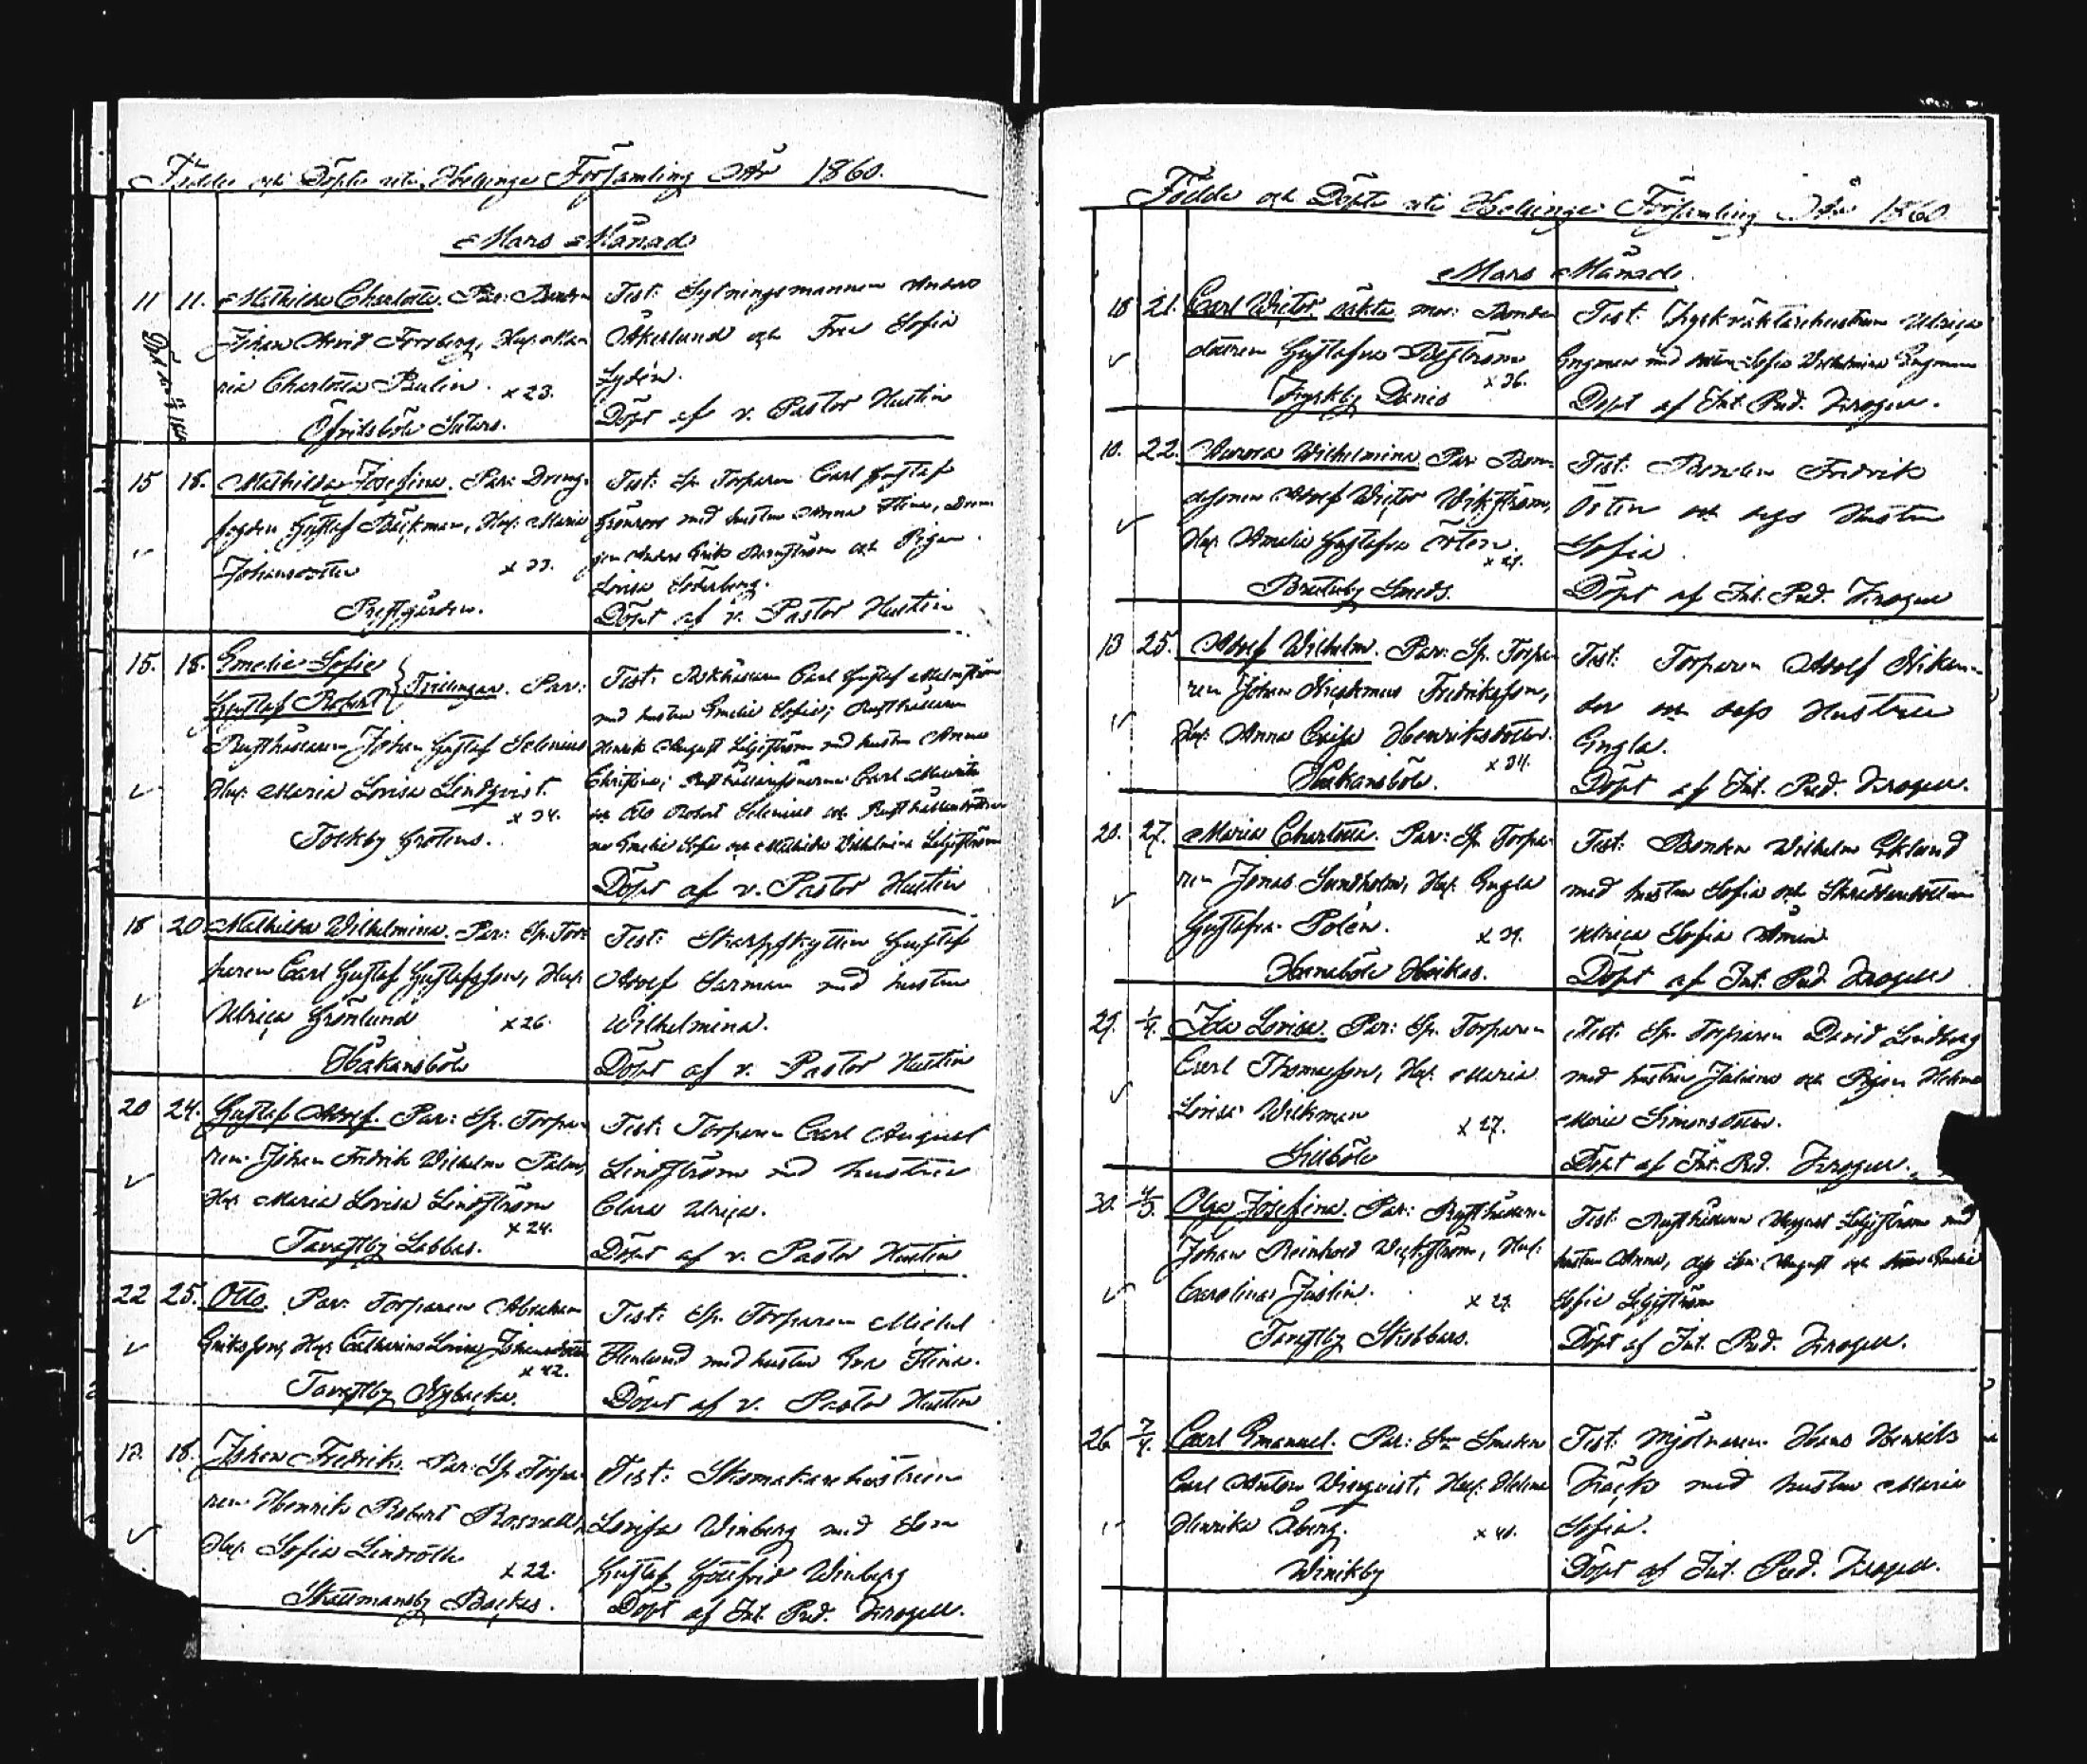 Födde och Döpte uti Helsinge Församling År 1860.
Mars Månad
11 11. Mathilda Charlotta. Par: Bonden
Johan Arvid Forsberg, Hu: Ma-
ria Charlotta Bulin. x 23.
Öfvitsböle Såters.
Test: Sytningsmannen Anders
Åkerlund och Fru Sofia
Lydén.
Döpt af v. Pastor Hustin
15 18. Mathilda Josefina. Par: Dreng-
fogden Gustaf Bäckman, Hu: Maria
Johansdotter x 33.
Prestgården.
Test: Sp. Torparen Carl Gustaf
Grönroos med hustru Anna Stina, Dren-
gen Anders Erik Bergström och Pigan
Lovisa Söderberg.
Döpt af v. Pastor Hustin
15. 18. Emelie Sofie
Gustaf Robert } Tvillingar. Par:
Rusthållaren Johan Gustaf Selenius
Hu: Maria Lovisa Lindqvist.
x 34.
Tolkby Grotens.
Test: Rusthållaren Carl Gustaf Malmström
med hustru Emelie Sofie; Rusthållaren
Henrik August Liljeström med hustru Anna
Christina; Rusthållaresönerne Carl Mauritz
och Otto Robert Selenius och Rusthållaredöttrar-
ne Emelie Sofie och Mathilda Wilhelmina Liljeström
Döpt af v. Pastor Hustin
18 20 Mathilda Wilhelmina. Par: Sp. Tor-
paren Carl Gustaf Gustafsson, Hu:
Ulrica Grönlund x 26.
Håkansböle
Test: Skarpskytten Gustaf
Adolf Sarman med hustru
Wilhelmina.
Döpt af v. Pastor Hustin
20 24. Gustaf Adolf. Par: Sp. Torpa-
ren Johan Fredrik Wilhelm Palm,
Hu: Maria Lovisa Lindström
x 24.
Tavastby Labbas.
Test: Torparen Carl August
Lindström med hustru
Clara Ulrica.
Döpt af v. Pastor Hustin
22 25. Otto. Par: Torparen Abraham
Eriksson, Hu: Catharina Lovisa Johansdotter
x 42.
Tavastby Nybacka.
Test: Sp. Torparen Michel
Stenlund med hustru Eva Stina.
Döpt af v. Pastor Hustin
13. 18. Johan Fredrik. Par: Sp. Torpa-
ren Henrik Robert Rosvall,
Hu: Sofia Lindroth
x 22.
Skattmansby Backas.
Test: Skomakarehustrun
Lovisa Winberg med son
Gustaf Gottfrid Winberg
Döpt af Int. Pred. Krogell.
Födde och Döpte uti Helsinge Församling År 1860.
Mars Månad.
18 21. Carl Wictor oäkta mor: Bonde
dottren Gustafva Boström
x 36.
Kyrkby Dönis
Test: Kyrkväktarehustrun Ulrica
Engman med dotter Sofia Wilhelmina Engman
Döpt af Int. Pred. Krogell.
10. 22. Aurora Wilhelmina Par: Bon-
desonen Adolf Wictor Wikström,
Hu: Amalia Gustafva Östen.
x 29.
Brutuby Smeds.
Test: Bonden Fredrik
Östen och dess Hustru
Sofia.
Döpt af Int. Pred. Krogell
13 25. Adolf Wilhelm. Par: Sp. Torpa-
ren Johan Fredriksson,
Hu: Anna Caisa Henriksdotter.
x 34.
Håkansböle.
Test: Torparen Adolf Nikan-
der och dess Hustru
Engla.
Döpt af Int. Pred. Krogell.
20. 27. Maria Charlotta. Par: Sp. Torpa-
ren Jonas Sundholm, Hu: Engla
Gustafva Polén. x 39.
Hanaböle Heikas.
Test: Bonden Wilhelm Eklund
med hustru Sofia och Skräddaredottren
Ulrica Sofia Åmin
Döpt af Int. Pred. Krogell
29. 1/4. Ida Lovisa. Par: Sp. Torparen
Carl Thomasson, Hu: Maria
Lovisa Wickman
x 27.
Sillböle
Test: Sp. Torparen David Lindberg
med hustru Juliana och Pigan Helena
Maria Simonsdotter.
Döpt af Int. Pred. Krogell.
30. Olga Josefina. Par: Rusthållaren
Johan Reinhold Wickström, Hu:
Carolina Justin. x 29.
Tavastby Stubbars.
Test: Rusthållaren August Liljeström med
hustru Anna, dess Son August och
Sofie Liljeström
Döpt af Int. Pred. Krogell.
26 7/4. Carl Emanuel. Par: Smeden
Carl Anton Winqvist, Hu: Helena
Henrika Åberg. x 40.
Winikby
Test: Mjölnaren Hans Henrik
Kräck med hustru Maria
Sofia.
Döpt af Int. Pred. Krogell.